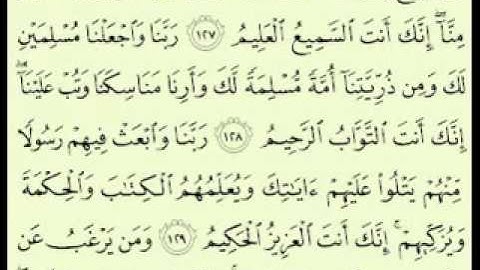 مِنَّآۖ إِنَّكَ أَنتَ ٱلسَّمِيعُ ٱلْعَلِيمُ ١٢٧ رَبَّنَا وَٱجْعَلْنَا مُسْلِمَيْنِ
لَكَ وَمِن ذُرِّيَّتِنَآ أُمَّةً مُّسْلِمَةً لَّكَ وَأَرِنَا مَنَاسِكَنَا وَتُبْ عَلَيْنَآۖ
إِنَّكَ أَنتَ ٱلتَّوَّابُ ٱلرَّحِيمُ ١٢٨ رَبَّنَا وَٱبْعَثْ فِيهِمْ رَسُولًا
مِّنْهُمْ يَتْلُوا۟ عَلَيْهِمْ ءَايَٰتِكَ وَيُعَلِّمُهُمُ ٱلْكِتَٰبَ وَٱلْحِكْمَةَ
وَيُزَكِّيهِمْۚ إِنَّكَ أَنتَ ٱلْعَزِيزُ ٱلْحَكِيمُ ١٢٩ وَمَن يَرْغَبُ عَن